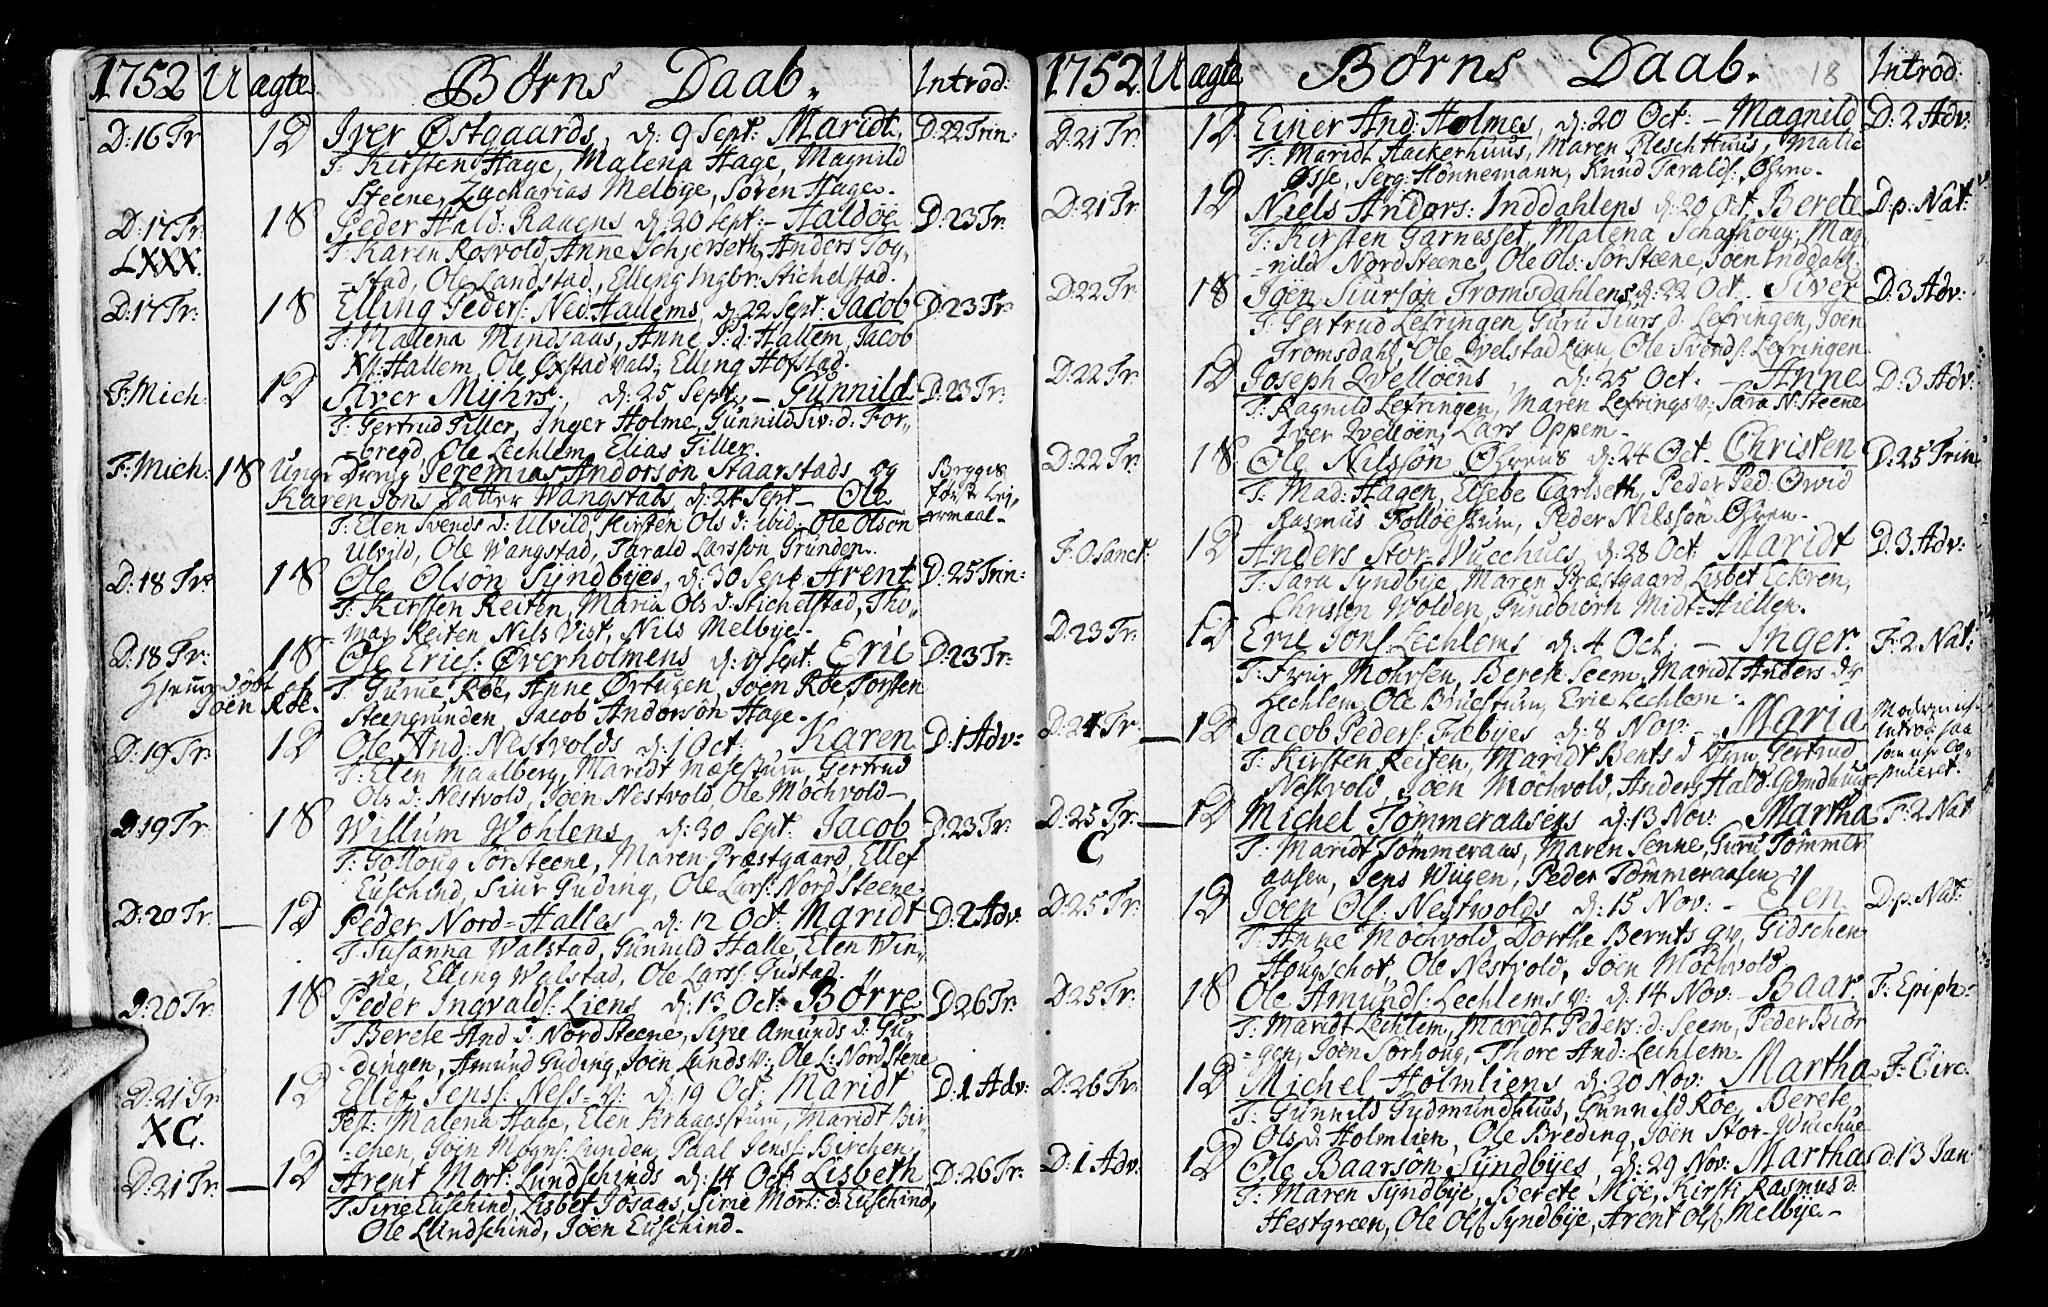 1752 U ægte. Børns Daab. Introd:
D: 16 Tr 1D Iver Østgaards, d: 9 Sept: Maridt, D: 22 Trin:
T: Kirsten Hage, Malena Hage, Magnild
Steene, Zacharias Melbye, Søren Hage.
D: 17 Tr: 18 Peder Hald: Ravens d: 20 Sept: - Haldøe D: 23 Tr:
LXXX. T: Karen Rosvold, Anne Schjerseth, Anders Tog-
-stad, Ole Landstad, Elling Ingbr: Stichelstad.
D: 17 Tr: 18 Elling Peders: Ned: Hallems, d: 22 Sept: Jacob D: 23 Tr:
T: Malena Mindsaas, Anne P: d: Hallem, Jacob
N: Hallem, Ole Øxstad vald; Elling Hofstad.
F: Mich: 1D Siver Myhrs, d: 25 Sept: - Gunnild D: 23 Tr:
T: Gertrud Tiller, Inger Holme, Gunnild Siv: d: For-
-bregd, Ole Lechlem, Elias Tiller.
F: Mich: 18 Unge Dreng Jeremias Andersøn Staarstads og Brygges
Karen Jons Datter Wangstads d: 24 Sept - Ole første Lej
T: Elen Svends d: Ulvild, Kirsten Ols d: ibid, Ole Olson ermaal -
Ulvild, Ole Wangstad, Tarald Larssøn Grunden.
D: 18 Tr: 18 Ole Olsøn Syndbyes, d: 30 Sept: Arent D: 25 Trin:
T: Kirsten Reiten, Maria Ols d: Stichelstad, Tho-
mas Reiten, Nils Vist, Nils Melbye.
D: 18 Tr: 18 Ole Erics: Øverholmens d: Sept: Eric D: 23 Tr:
Hjemmedøbt af T: Gurue Røe, Anne Ørtugen, Joen Røe, Torsten
Joen Røe. Steengrunden, Jacob Andersøn Hage.
D: 19 Tr: 1D Ole And: Nestvolds d: 1 Oct: Karen D: 1 Adv:
T: Elen Maalberg, Maridt Mæsestum, Gertrud
Ols d: Nestvold, Joen Nestvold, Ole Møchvold -
D: 19 Tr 18 Willum Wohlens d: 30 Sept: Jacob D: 23 Tr:
T: Golloug Sørsteene, Maren Præstgaard, Ellef
Euschind, Siur Guding, Ole Lars: Nord Steene.
D: 20 Tr. 1D Peder Nord-Halles d: 12 Oct: Maridt D: 2 Adv:
T: Susanna Walstad, Gunnild Halle, Elen Win-
ne, Elling Walstad, Ole Larss: Gustad.
D: 20 Tr: 18 Peder Ingvalds: Liens d: 13 Oct: Børre D: 26 Tr:
T: Berete And d: Nord Steene, Sirie Amunds d: Gu-
-dingen, Amund Guding, Joen Lunds v:, Ole L: Nord Stene
D: 21 Tr 1D Ellef Jenss: Ness-v: d: 19 Oct. Maridt D: 1 Adv:
XC. Test: Malena Hage, Elen Kraagsstum, Maridt Bir-
chen, Joen Mogns: Sunden, Paal Jenss: Birchen.
D: 21 Tr: 1D Arent Mort: Lundschinds d: 14 Oct: Lisbeth D: 26 Tr:
T: Sirie Euschind, Lisbet Josaas, Sirie Mort: d: Euschind,
Ole Lundschind, Joen Euschind.
1752. U ægte Børns Daab. 18 Introd:
D: 21 Tr: 1D Einer And: Holmes, d: 20 Oct: - Magnild D: 2 Adv:
T: Maridt Aackerhuus, Maren Pleschhuus, Malie
Øsse, Serg: Hønnemann, Knud Taralds: Øhrn.
D: 21 Tr 1D Niels Anders: Inddahlens d: 20 Oct. Berete D: p: Nat:
T: Kirsten Garnesset, Malena Schafhoug, Mag-
-nild Nord Steene, Ole Ols: Sør Steene, Joen Inddahl.
D: 22 Tr 18 Joen Siursøn Tromsdahlens, d: 22 Oct. Siver D: 3 Adv:
T: Gertrud Lefringen, Guru Siurs d: Lefringen, Joen
Tromsdahl, Ole Qvelstad Lien, Ole Svends: Lefringen.
D: 22 Tr. 1D Joseph Qvelløens, d: 25 Oct. - Anne D: 3 Adv:
T: Ragnild Lefringen, Maren Lefrings v: Sara N: Steene
Iver Qvelløen, Lars Oppem.
D: 22 Tr: 18 Ole Nilssøn Øhrens d: 24 Oct. Christen D: 25 Trin
T: Mad: Hagen, Elsebe Carlseth, Peder Ped: Orvid
Rasmus Folløestum, Peder Nilssøn Øhren.
F: O. Sanct: 1D Anders Stor-Wucchues, d: 28 Oct: Maridt D: 3 Adv:
T: Sara Syndbye, Maren Præstgaard, Lisbet Eckren,
Christen Wolden, Gundbiørn Midt-Hiellen.
D: 23 Tr: 1D Eric Jons: Lechlems d: 4 Oct. - Inger. F: 2 Nat:
T: Mohrsen, Beret Seem, Maridt Anders dr
Lechlem, Ole Bruestum, Eric Lechlem.
D: 24 Tr 1D Jacob Peders: Fæbyes d: 8 Nov: - Maria Moderen ej
T: Kirsten Reiten, Maridt Bents d: Gertrud introd: saa
Nestvold, Joen Møchvold, Anders Hald: Gudmdhuus som nye Co-
puleret.
D: 25 Tr: 1D Michel Tømmeraasens d: 13 Nov: Martha F: 2 Nat
C. T: Maridt Tømmeraas, Maren Senne, Guru Tømmer
aasen, Jens Wugen, Peder Tømmeraasen
D: 25 Tr: 1D Joen Ols: Nestwolds d: 15 Nov: - Elen D: p: Nat:
T: Anne Møchvold, Dorthe Bernts qv, Gidschen
Hougschot, Ole Nestvold, Joen Møchvold
D: 25 Tr: 18 Ole Amunds: Lechlems v: d: 14 Nov: - Baar. F: Epiph:
T: Maridt Lechlem, Maridt Peders: d: Seem, Peder Biør
-gen, Joen Sørhoug, Thore And: Lechlem.
D: 26 Tr: 1D Michel Holmliens d: 20 Nov: Martha F: Circ:
T: Gunnild Gudmundhuus, Gunnild Røe, Berete
Ols d: Holmlien, Ole Breding, Joen Stor-Wuchue
D: 1 Adv. 1D Ole Baarsøn Syndbyes, d: 29 Nov: Martha d: 13 Jan
T: Maren Syndbye, Berete Moe, Kirsti Rasmus d:
Hestgreen, Ole Ols: Syndbye, Arent Ols: Melbye -